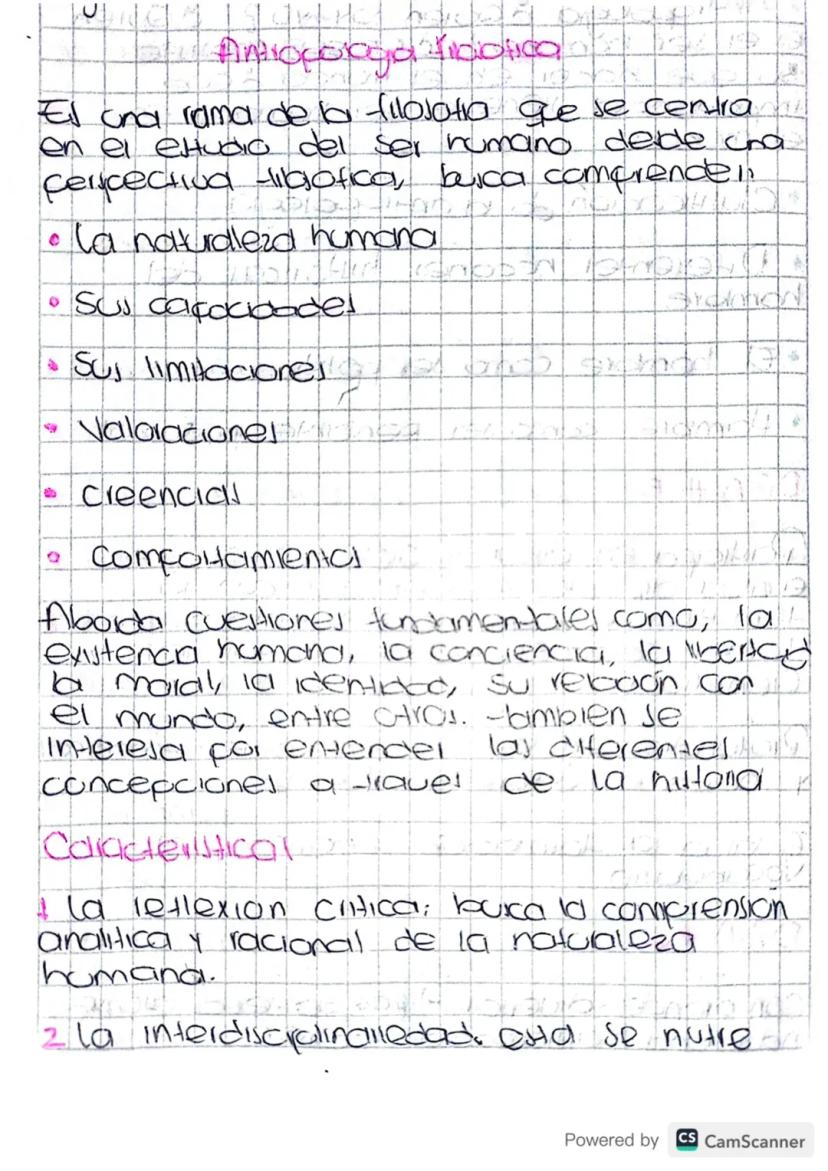 Antropologia filosofica
Es una rama de la filosofia que se centra
en el estudio del ser humano desde una
perspectiva filosofica, busca comprender:
• La naturaleza humana
• Sus capacidades
• Sus limitaciones
• Valoraciones
• creencias
• comportamientos
Aborda cuestiones fundamentales como, la
existencia humana, la conciencia, la libertad
la moral, la identidad, su relación con
el mundo, entre otros. tambien se
interesa por entender las diferentes
concepciones a traves de la historia
Caracteristicas
1 La reflexion critica: busca la comprensión
analitica y racional de la naturaleza
humana.
2 La interdisciplinariedad. esta se nutre
Powered by CS CamScanner